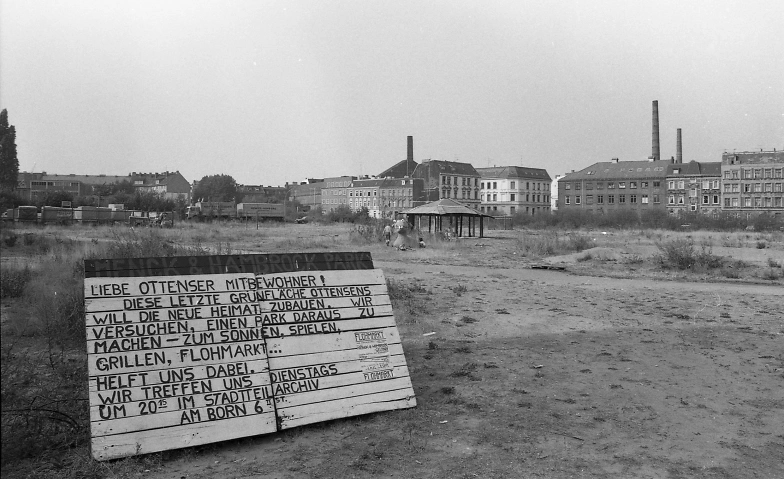 PARK
LIEBE OTTENSER MITBEWOHNER!
DIESE LETZTE GRÜNFLÄCHE OTTENSENS
WILL DIE NEUE HEIMAT ZUBAUEN. WIR
VERSUCHEN, EINEN PARK DARAUS ZU
MACHEN – ZUM SONNEN, SPIELEN,
GRILLEN, FLOHMARKT...
HELFT UNS DABEI.
WIR TREFFEN UNS DIENSTAGS
UM 20 15 IM STADTTEILARCHIV
AM BORN 6 II ST.
FLOHMARKT
FLOHMARKT